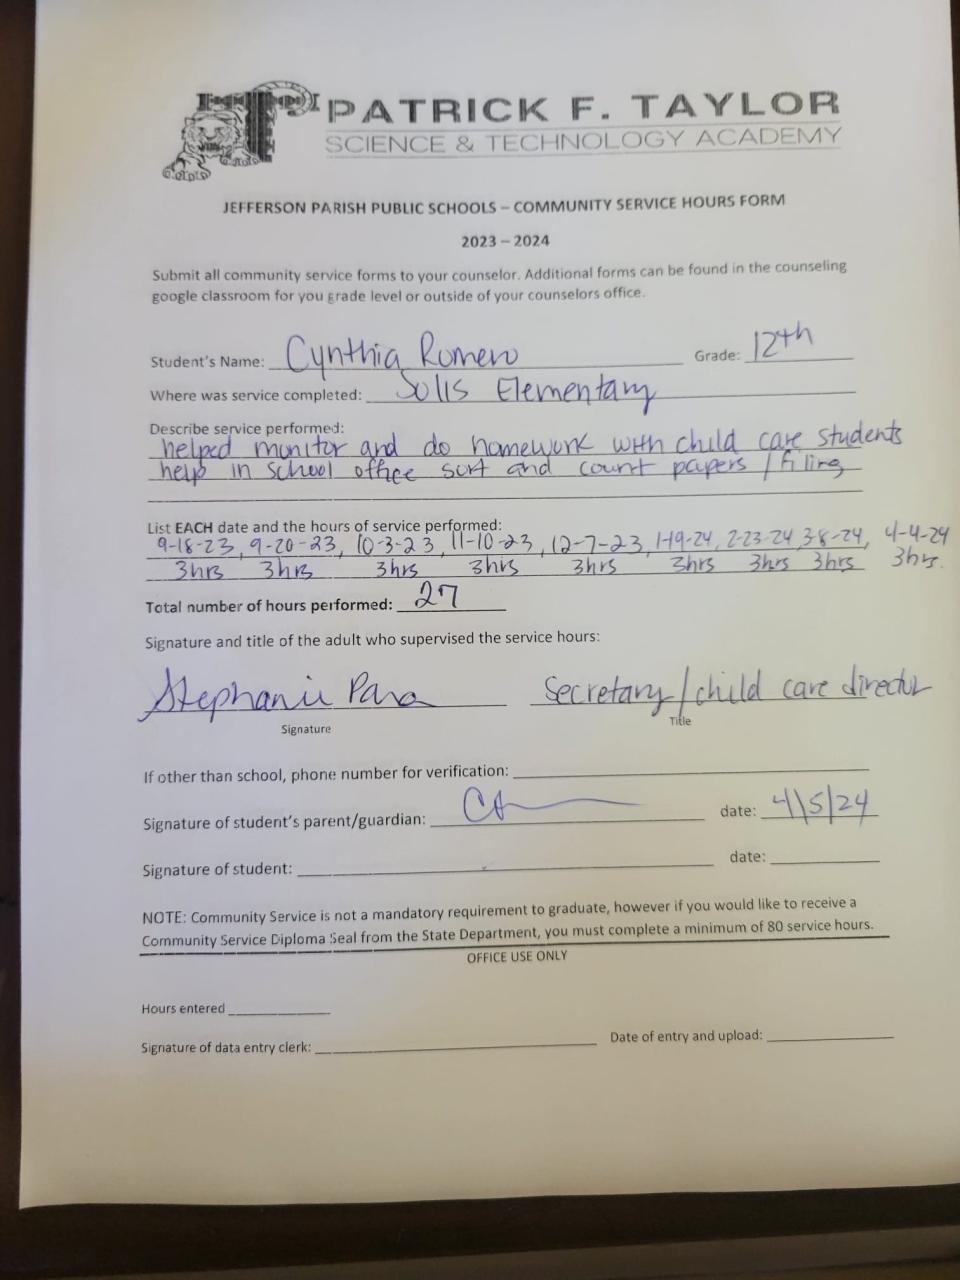 PATRICK F. TAYLOR
SCIENCE & TECHNOLOGY ACADEMY
JEFFERSON PARISH PUBLIC SCHOOLS – COMMUNITY SERVICE HOURS FORM
2023 – 2024
Submit all community service forms to your counselor. Additional forms can be found in the counseling
google classroom for you grade level or outside of your counselors office.
Student's Name: Cynthia Romero Grade: 12th
Where was service completed: Solis Elementary
Describe service performed:
helped monitor and do homework with child care students
help in school office sort and count papers / filing
List EACH date and the hours of service performed:
9-18-23, 9-20-23, 10-3-23, 11-10-23, 12-7-23, 1-19-24, 2-23-24, 3-8-24, 4-4-24
3hrs 3hrs 3hrs 3hrs 3hrs 3hrs 3hrs 3hrs 3hrs.
Total number of hours performed: 27
Signature and title of the adult who supervised the service hours:
Stephanie Secretary / child care director
Signature Title
If other than school, phone number for verification:
Signature of student's parent/guardian: date: 4/5/24
Signature of student: date:
NOTE: Community Service is not a mandatory requirement to graduate, however if you would like to receive a
Community Service Diploma Seal from the State Department, you must complete a minimum of 80 service hours.
OFFICE USE ONLY
Hours entered
Signature of data entry clerk: Date of entry and upload: